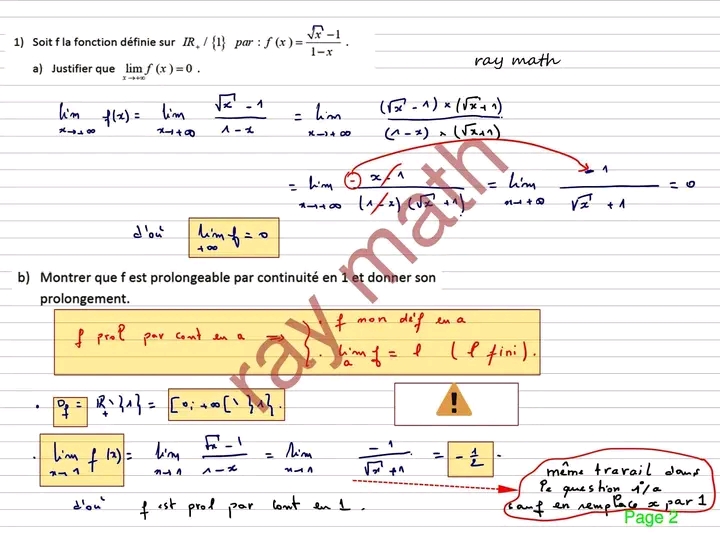 1) Soit f la fonction définie sur IR₊ / {1} par : f (x) = (√x − 1)/(1 − x) .
ray math
a) Justifier que lim x→+∞ f (x) = 0 .
lim x→+∞ f(x) = lim x→+∞ (√x − 1)/(1 − x) = lim x→+∞ ((√x − 1) × (√x + 1))/((1 − x) × (√x + 1))
= lim x→+∞ − (x − 1)/((1 − x) (√x + 1)) = lim x→+∞ − 1/(√x + 1) = 0
d'où lim +∞ f = 0
b) Montrer que f est prolongeable par continuité en 1 et donner son
prolongement.
f prol par cont en a ⇒ { . f non déf en a
. lim a f = l (l fini).
. Df = IR₊ \ {1} = [0; +∞[ \ {1}.
. lim x→1 f(x) = lim x→1 (√x − 1)/(1 − x) = lim x→1 − 1/(√x + 1) = − 1/2 .
même travail dans
la question 1/a
sauf on remplace x par 1
d'où f est prol par cont en 1 .
Page 2
ray math